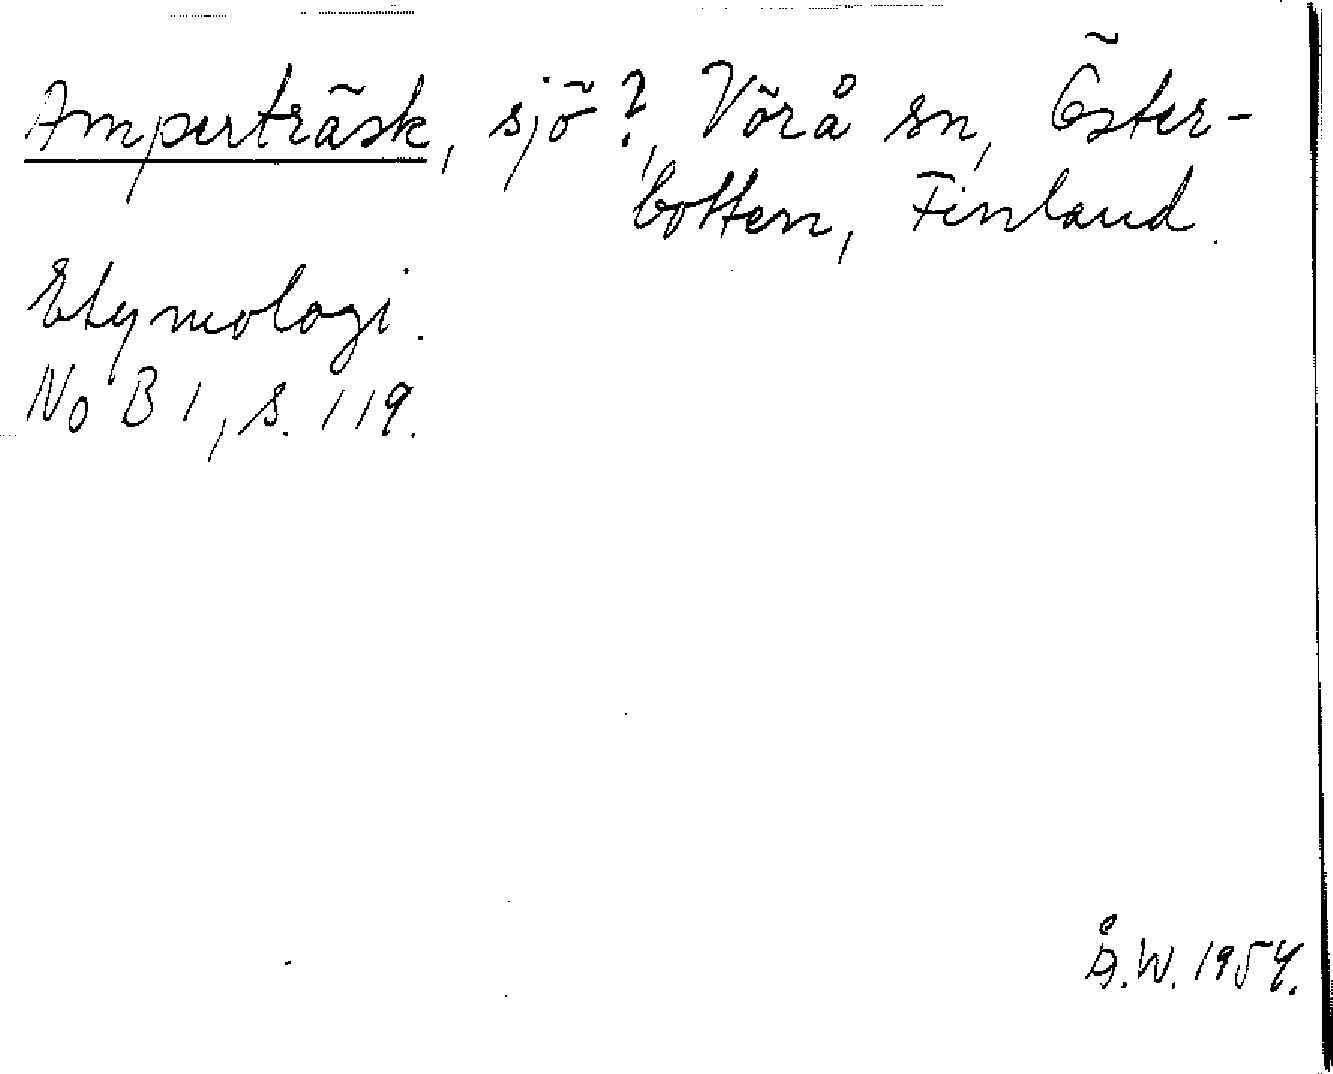 Amperträsk, sjö?, Vörå sn, Öster-
botten, Finland.
Etymologi.
NoB 1, s. 119.
Å.W. 1954.